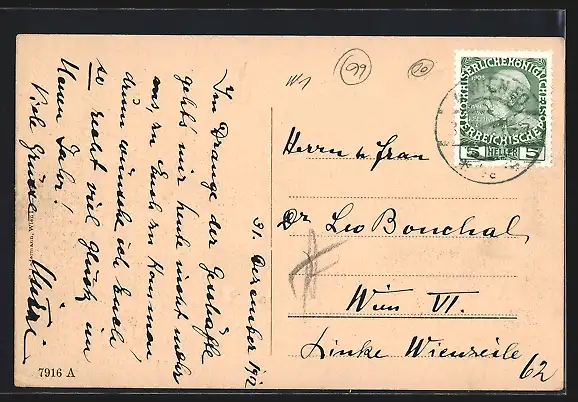 31. Dezember 1912
Im Drange der Geschäfte
geht's mir heute nicht mehr
aus, zu Euch zu kommen
drum wünsche ich Euch
so recht viel Glück im
Neuen Jahr!
Viele Grüsse
W1
99
20
KAISERLICHEKÖNIGLICHE
ÖSTERREICHISCHE
5 HELLER 5
Herrn u Frau
Dr Leo Bouchal
Wien VI.
Linke Wienzeile
62
7916 A